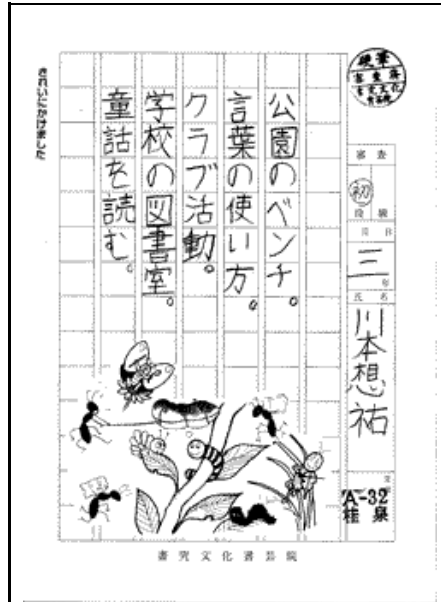 硬筆
審査
初
段級
月日
三年
氏名
川本想祐
A-32
桂泉
公園のベンチ。
言葉の使い方。
クラブ活動。
学校の図書室。
童話を読む。
きれいにかけました
書究文化書芸院